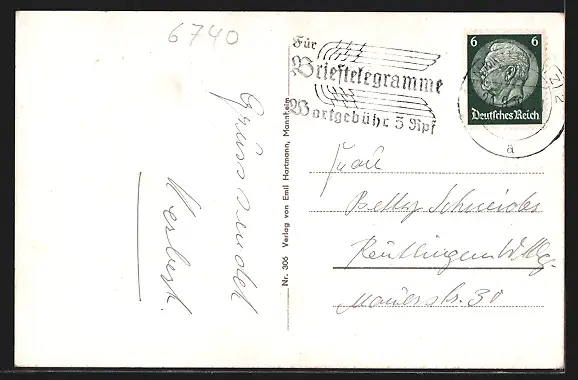 6740
Gruss sendet
Herbert.
Nr. 306 Verlag von Emil Hartmann, Mannheim
Für
Brieftelegramme
Wortgebühr 5 Rpf
6 6
Deutsches Reich
a
Frau
Betty Schneider
Reutlingen Wttbg.
Mauerstr. 30